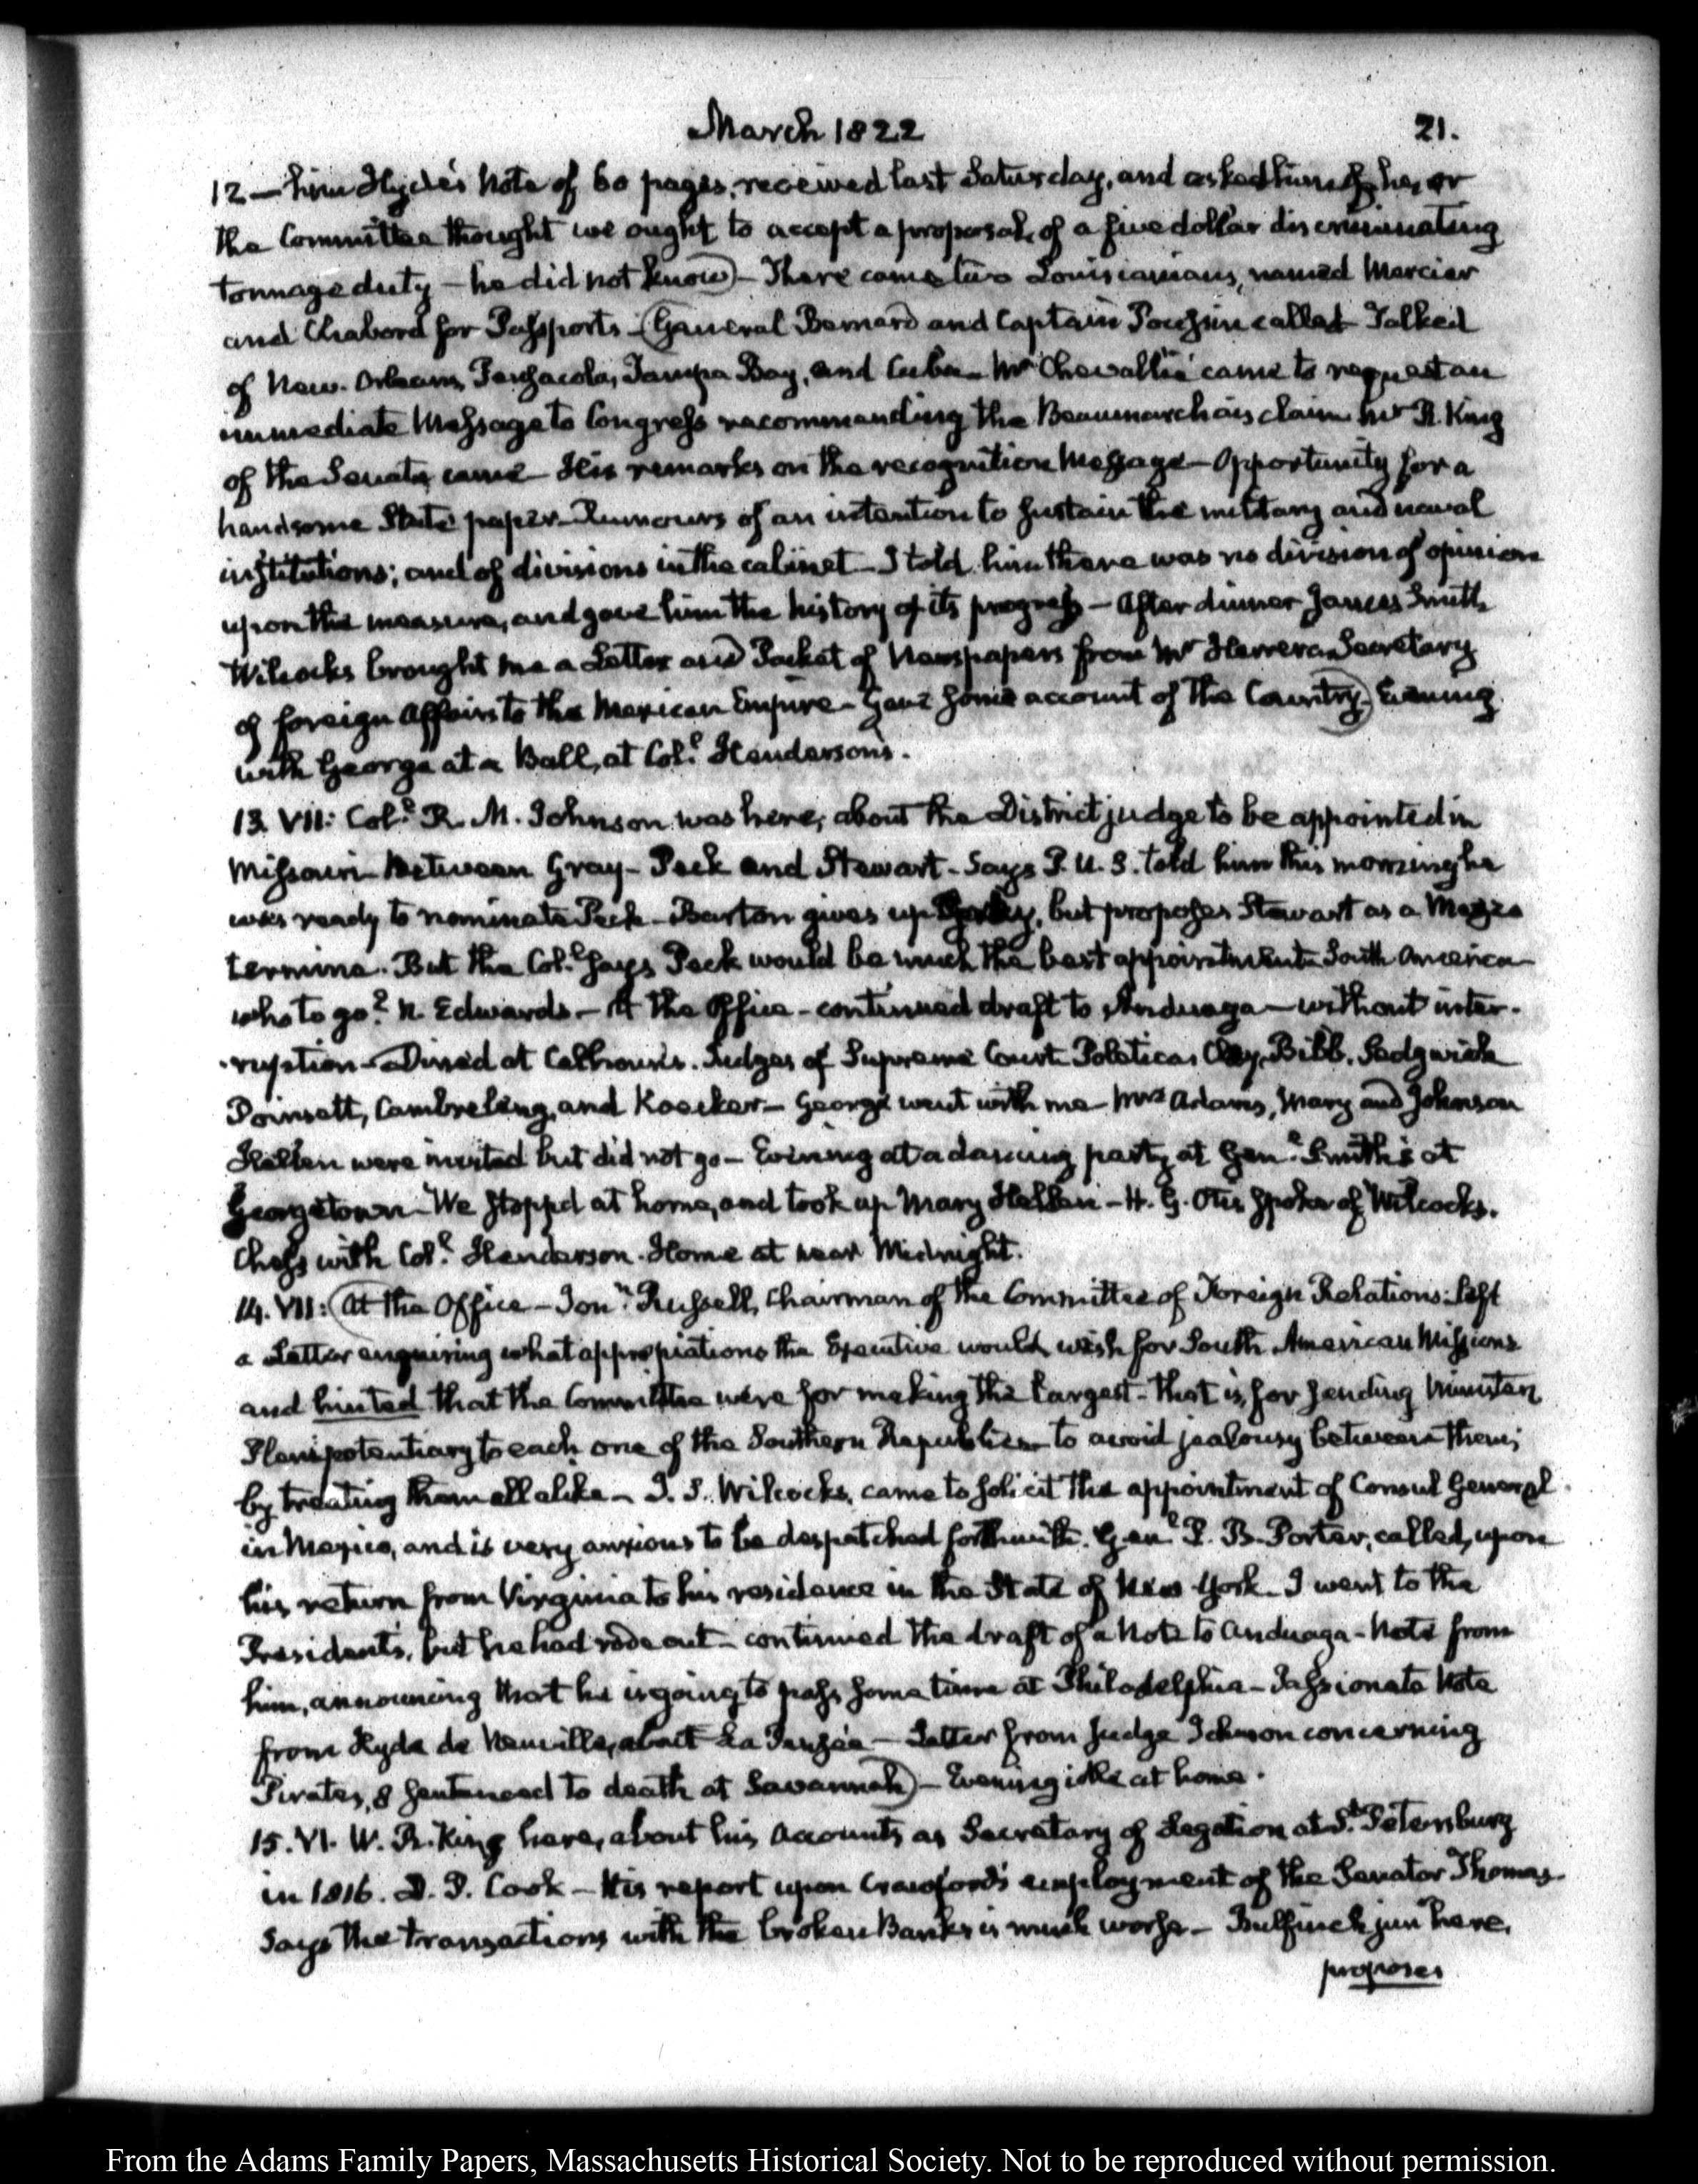 March 1822
21.
12 — him Hyde's Note of 60 pages, received last Saturday, and asked him if he, or
the Committee thought we ought to accept a proposal, of a five dollar discriminating
tonnage duty — he did not know — There came two Louisianians, named Mercier
and Chabord for Passports — General Bernard and Captain Poussin called Talked
of New-Orleans, Pensacola, Tampa Bay, and Cuba — Mr Chevallié came to request an
immediate Message to Congress recommending the Beaumarchais claim Mr R. King
of the Senate, came — His remarks on the recognition Message — Opportunity for a
handsome State paper — Rumours of an intention to sustain the military and naval
institutions; and of divisions in the cabinet — I told him there was no division of opinion
upon the measure, and gave him the history of its progress — After dinner James Smith
Wilcocks brought me a Letter and Packet of Newspapers from Mr Herrera Secretary
of foreign Affairs to the Mexican Empire — Gave some account of the Country — Evening
with George at a Ball, at Coll. Henderson's.
13. VII: Coll. R. M. Johnson was here, about the District judge to be appointed in
Missouri — between Gray — Peck and Stewart — Says P. U. S. told him this morning he
was ready to nominate Peck — Barton gives up but proposes Stewart as a Mezzo
termine. But the Coll. says Peck would be much the best appointment — South America
who to go? N. Edwards — At the Office — continued draft to Anduaga — without inter-
-ruption — Dined at Calhoun's. Judges of Supreme Court Poletica, Clay, Bibb, Sedgwick
Poinsett, Cambreleng, and Koecker — George went with me — Mrs Adams, Mary and Johnson
Hellen were invited but did not go — Evening at a dancing party at Genl. Smith's at
Georgetown — We stopped at home, and took up Mary Hellen — H. G. Otis spoke of Wilcocks.
Chess with Coll. Henderson. Home at near Midnight.
14. VII: At the Office — Jonn. Russell, Chairman of the Committee of Foreign Relations: left
a Letter enquiring what appropriations the Executive would wish for South American Missions
and hinted that the Committee were for making the largest — that is, for sending Ministers
Plenipotentiary to each one of the Southern Republics — to avoid jealousy between them;
by treating them all alike — J. S. Wilcocks, came to solicit the appointment of Consul General
in Mexico, and is very anxious to be despatched forthwith. Genl. P. B. Porter, called, upon
his return from Virginia to his residence in the State of New-York — I went to the
Presidents, but he had rode out — continued the draft of a Note to Anduaga — Note from
him, announcing that he is going to pass some time at Philadelphia — Passionate Note
from Hyde de Neuville, about La Pensée — Letter from Judge Johnson concerning
Pirates, 8 sentenced to death at Savannah) — Evening idle at home.
15. VI. W. R. King here, about his Accounts as Secretary of Legation at St. Petersburg
in 1816. D. P. Cook — His report upon Crawford's employment of the Senator Thomas.
Says the transactions with the broken Banks is much worse — Bulfinch junr here,
proposes
From the Adams Family Papers, Massachusetts Historical Society. Not to be reproduced without permission.